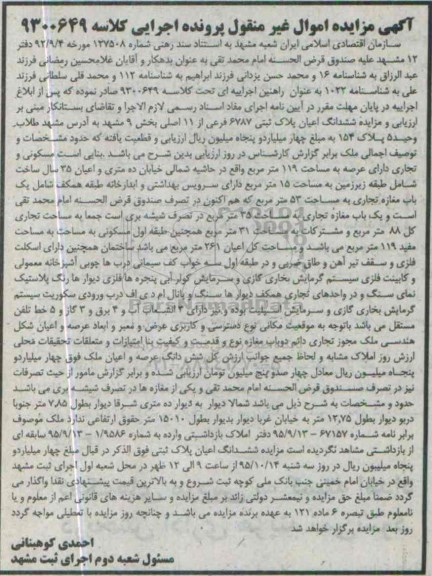 آگهی مزایده اموال غیر منقول پرونده اجرایی کلاسه ۹۳۰۰۶۴۹
سازمان اقتصادی اسلامی ایران شعبه مشهد به استناد سند رهنی شماره ۱۳۷۵۰۸ مورخه ۹۲/۹/۴ دفتر
۱۲ مشهد علیه صندوق قرض الحسنه امام محمد تقی به عنوان بدهکار و آقایان غلامحسین رمضانی فرزند
عبد الرزاق به شناسنامه ۱۶ و محمد حسن یزدانی فرزند ابراهیم به شناسنامه ۱۱۲ و محمد قلی سلطانی فرزند
علی به شناسنامه ۱۰۲۲ به عنوان راهنین اجراییه ای تحت کلاسه ۹۳۰۰۶۴۹ صادر نموده که پس از ابلاغ
اجراییه در پایان مهلت مقرر در آیین نامه اجرای مفاد اسناد رسمی لازم الاجرا و تقاضای بستانکار مبنی بر
ارزیابی و مزایده ششدانگ اعیان پلاک ثبتی ۶۷۸۷ فرعی از ۱۱ اصلی بخش ۹ مشهد به آدرس مشهد طلاب
وحید ۵ پلاک ۱۵۴ به مبلغ چهار میلیاردو پنجاه میلیون ریال ارزیابی و قطعیت یافته که حدود مشخصات و
توصیف اجمالی ملک برابر گزارش کارشناس در روز ارزیابی بدین شرح می باشد بنایی است مسکونی و
تجاری دارای عرصه به مساحت ۱۱۹ متر مربع واقع در حاشیه شمالی خیابان ده متری و اعیان ۳۵ سال ساخت
شامل طبقه زیرزمین به مساحت ۱۵ متر مربع دارای سرویس بهداشتی و ابدارخانه طبقه همکف شامل یک
باب مغازه تجاری به مساحت ۵۳ متر مربع که هم اکنون در تصرف صندوق قرض الحسنه امام محمد تقی
است و یک باب مغازه تجاری به مساحت ۳۵ متر مربع در تصرف شیشه بری است جمعا به مساحت تجاری
کل ۸۸ متر مربع و مشترکات ۳۱ متر مربع همچنین طبقه اول مسکونی به مساحت به مساحت
مفید ۱۱۹ متر مربع می باشد و مساحت کل اعیان ۲۶۱ متر مربع می باشد ساختمان همچنین دارای اسکلت
فلزی و سقف تیر آهن و طاق ضربی و در طبقه اول سه خواب کف سیمانی درب ها چوبی آشپزخانه معمولی
و کابینت فلزی سیستم گرمایش بخاری گازی و سرمایش کولر آبی پنجره ها فلزی دیوار ها رنگ پلاستیک
نمای سنگ و در واحدهای تجاری همکف دیوار ها سنگ و پانل ام دی اف درب ورودی سکوریت سیستم
گرمایش بخاری گازی و سرمایش اسپلیت بوده و نیز دارای ۳ انشعاب آب و ۴ برق و ۳ گاز و ۵ خط تلفن
مستقل می باشد باتوجه به موقعیت مکانی نوع دسترسی و کاربری عرض و معبر و ابعاد عرصه و اعیان شکل
هندسی ملک مجوز تجاری دائم دوباب مغازه نوع و قدمت و کیفیت بنا امتیازات و متعلقات تحقیقات محلی
ارزش روز املاک مشابه و لحاظ جمیع جوانب ارزش کل شش دانگ عرصه و اعیان ملک فوق چهار میلیاردو
پنجاه میلیون ریال معادل چهار صدو پنج میلیون تومان ارزیابی شده و برابر گزارش مامور از حیث تصرفات
نیز در تصرف صندوق قرض الحسنه امام محمد تقی و یکی از مغازه ها در تصرف شیشه بری می باشد
حدود و مشخصات به شرح ذیل می باشد شمالا دیوار به دیوار ده متری شرقا دیوار بطول ۷،۸۵ متر جنوبا
دربو دیوار بطول ۱۲،۷۵ متر به خیابان غربا دیوار بدیوار بطول ۱۵،۱۰ متر حقوق ارتفاعی ندارد ملک موصوف
برابر نامه شماره ۶۷۱۵۷ – ۹۵/۹/۱۳ دفتر املاک بازداشتی وارده به شماره ۱/۹۵۸۶ – ۹۵/۹/۱۳ سابقه ای
از بازداشتی مشاهد نگردیده است مزایده ششدانگ اعیان پلاک ثبتی فوق الذکر در قبال مبلغ چهار میلیاردو
پنجاه میلیون ریال در روز سه شنبه ۹۵/۱۰/۱۴ از ساعت ۹ الی ۱۲ ظهر در محل شعبه اول اجرای ثبت مشهد
واقع در خیابان امام خمینی جنب بانک ملی کوچه ثبت شروع و به بالاترین قیمت پیشنهادی نقدا واگذار می
گردد ضمنا مبلغ حق مزایده و نیمعشر دولتی زائد بر مبلغ مزایده و سایر هزینه های قانونی اعم از معلوم و یا
نامعلوم طبق تبصره ۶ ماده ۱۲۱ به عهده برنده مزایده می باشد و چنانچه روز مزایده با تعطیلی مواجه گردد
روز بعد مزایده برگزار خواهد شد
احمدی کوهبنانی
مسئول شعبه دوم اجرای ثبت مشهد